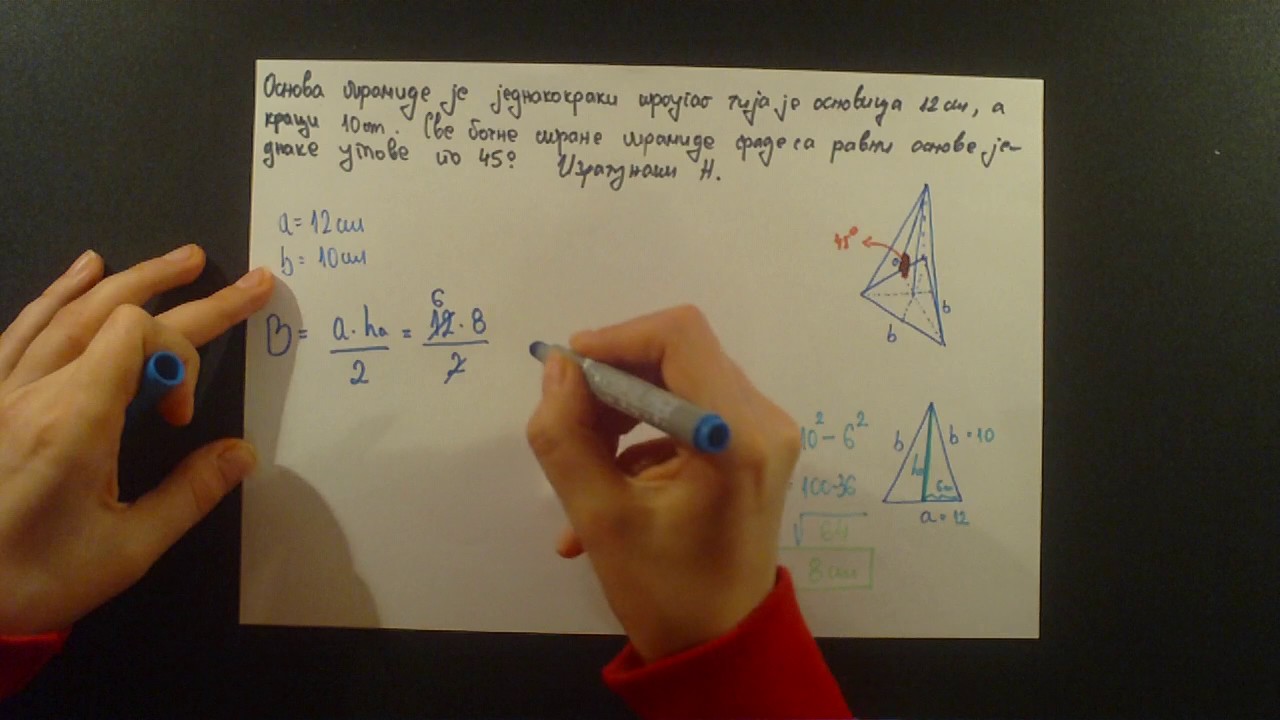 Основа пирамиде је једнакокраки троугао чија је основица 12cm, а
краци 10cm. Све бочне стране пирамиде граде са равни основе је-
днаке углове по 45°. Израчунати H.
a = 12cm
b = 10cm
B = a·hₐ / 2 = 12·8 / 2
6
45°
a
b
b
10² - 6²
= 100-36
√64
8cm
b
b = 10
hₐ
6cm
a = 12